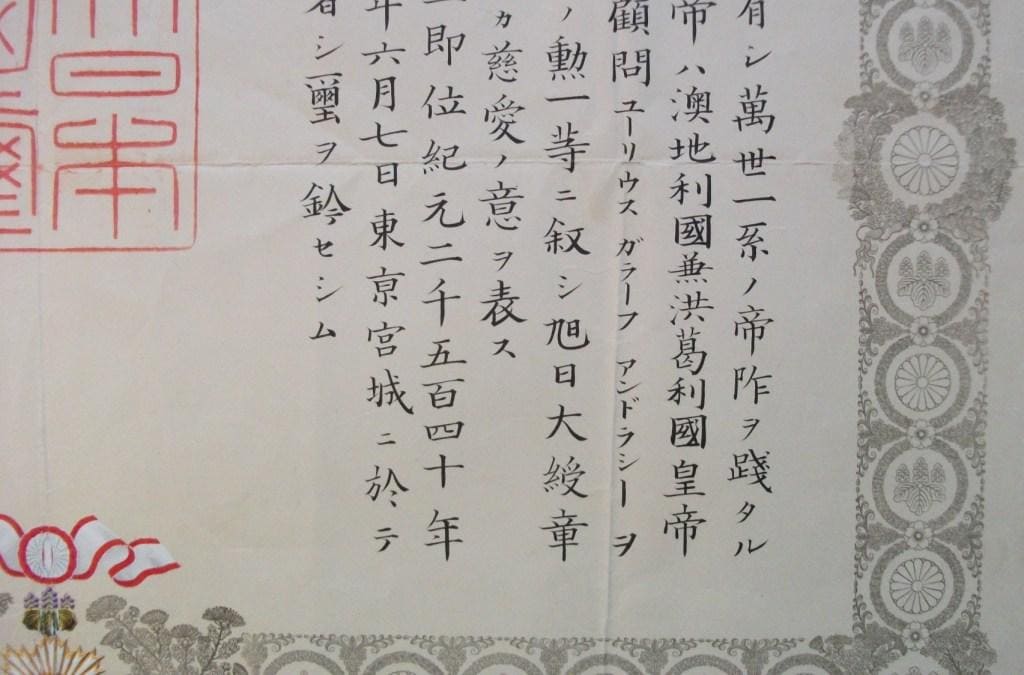 有シ萬世一系ノ帝阼ヲ踐タル
帝ハ澳地利國兼洪葛利國皇帝
顧問ユーリウス ガラーフ アンドラシーヲ
ノ勲一等ニ叙シ旭日大綬章
カ慈愛ノ意ヲ表ス
即位紀元二千五百四十年
年六月七日東亰宮城ニ於テ
シ璽ヲ鈐セシム
日本